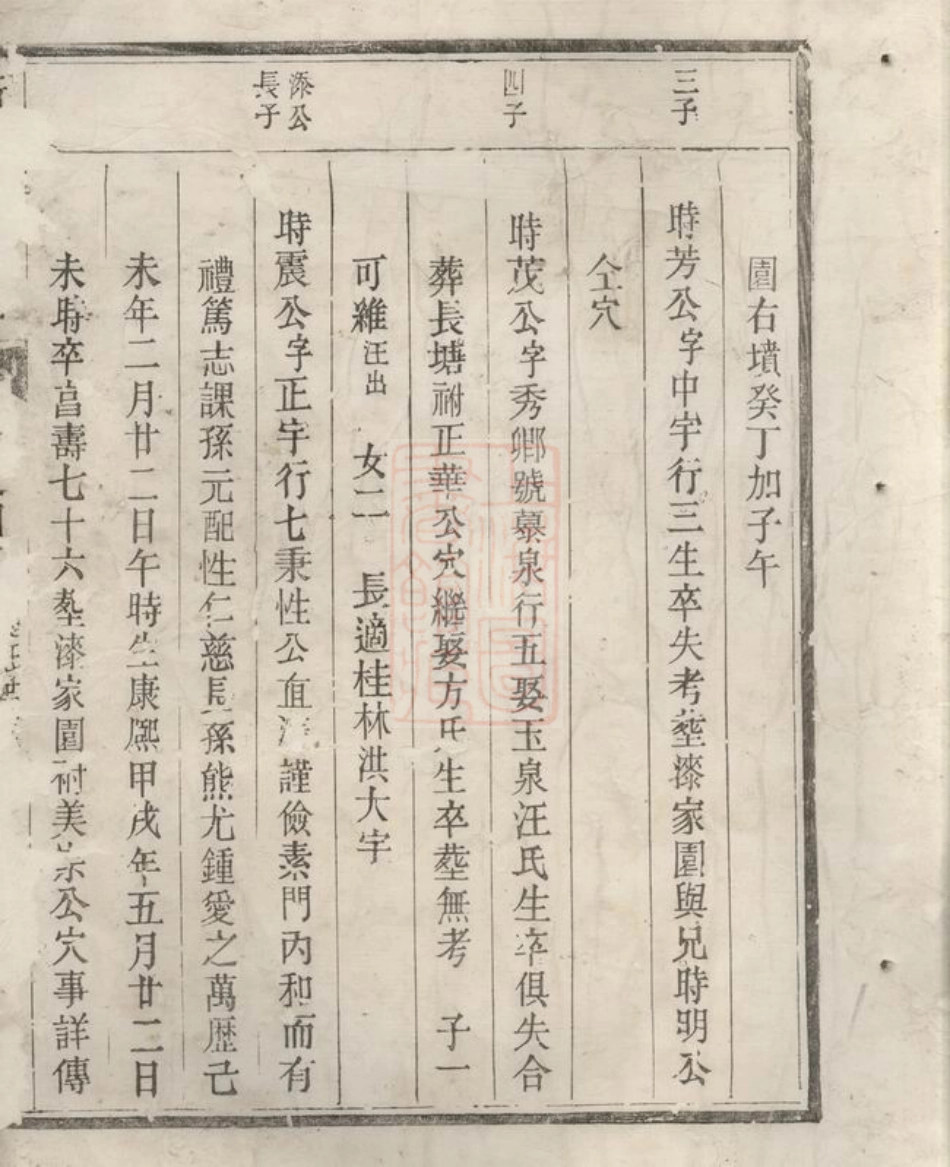 園右墳癸丁加子午
三子
時芳公字中宇行三生卒失考塟漆家園與兄時明公
仝穴
四子
時茂公字秀卿號慕泉行五娶玉泉汪氏生卒俱失合
葬長塘祔正華公穴繼娶方氏生卒塟無考 子一
可雜汪出 女二 長適桂林洪大宇
漆公
長子
時震公字正宇行七秉性公直 謹儉素門內和而有
禮篤志課孫元配性仁慈長孫熊尤鍾愛之萬歷己
未年二月廿二日午時生康熙甲戌年五月廿二日
未時卒享壽七十六塟漆家園祔美宗公穴事詳傳